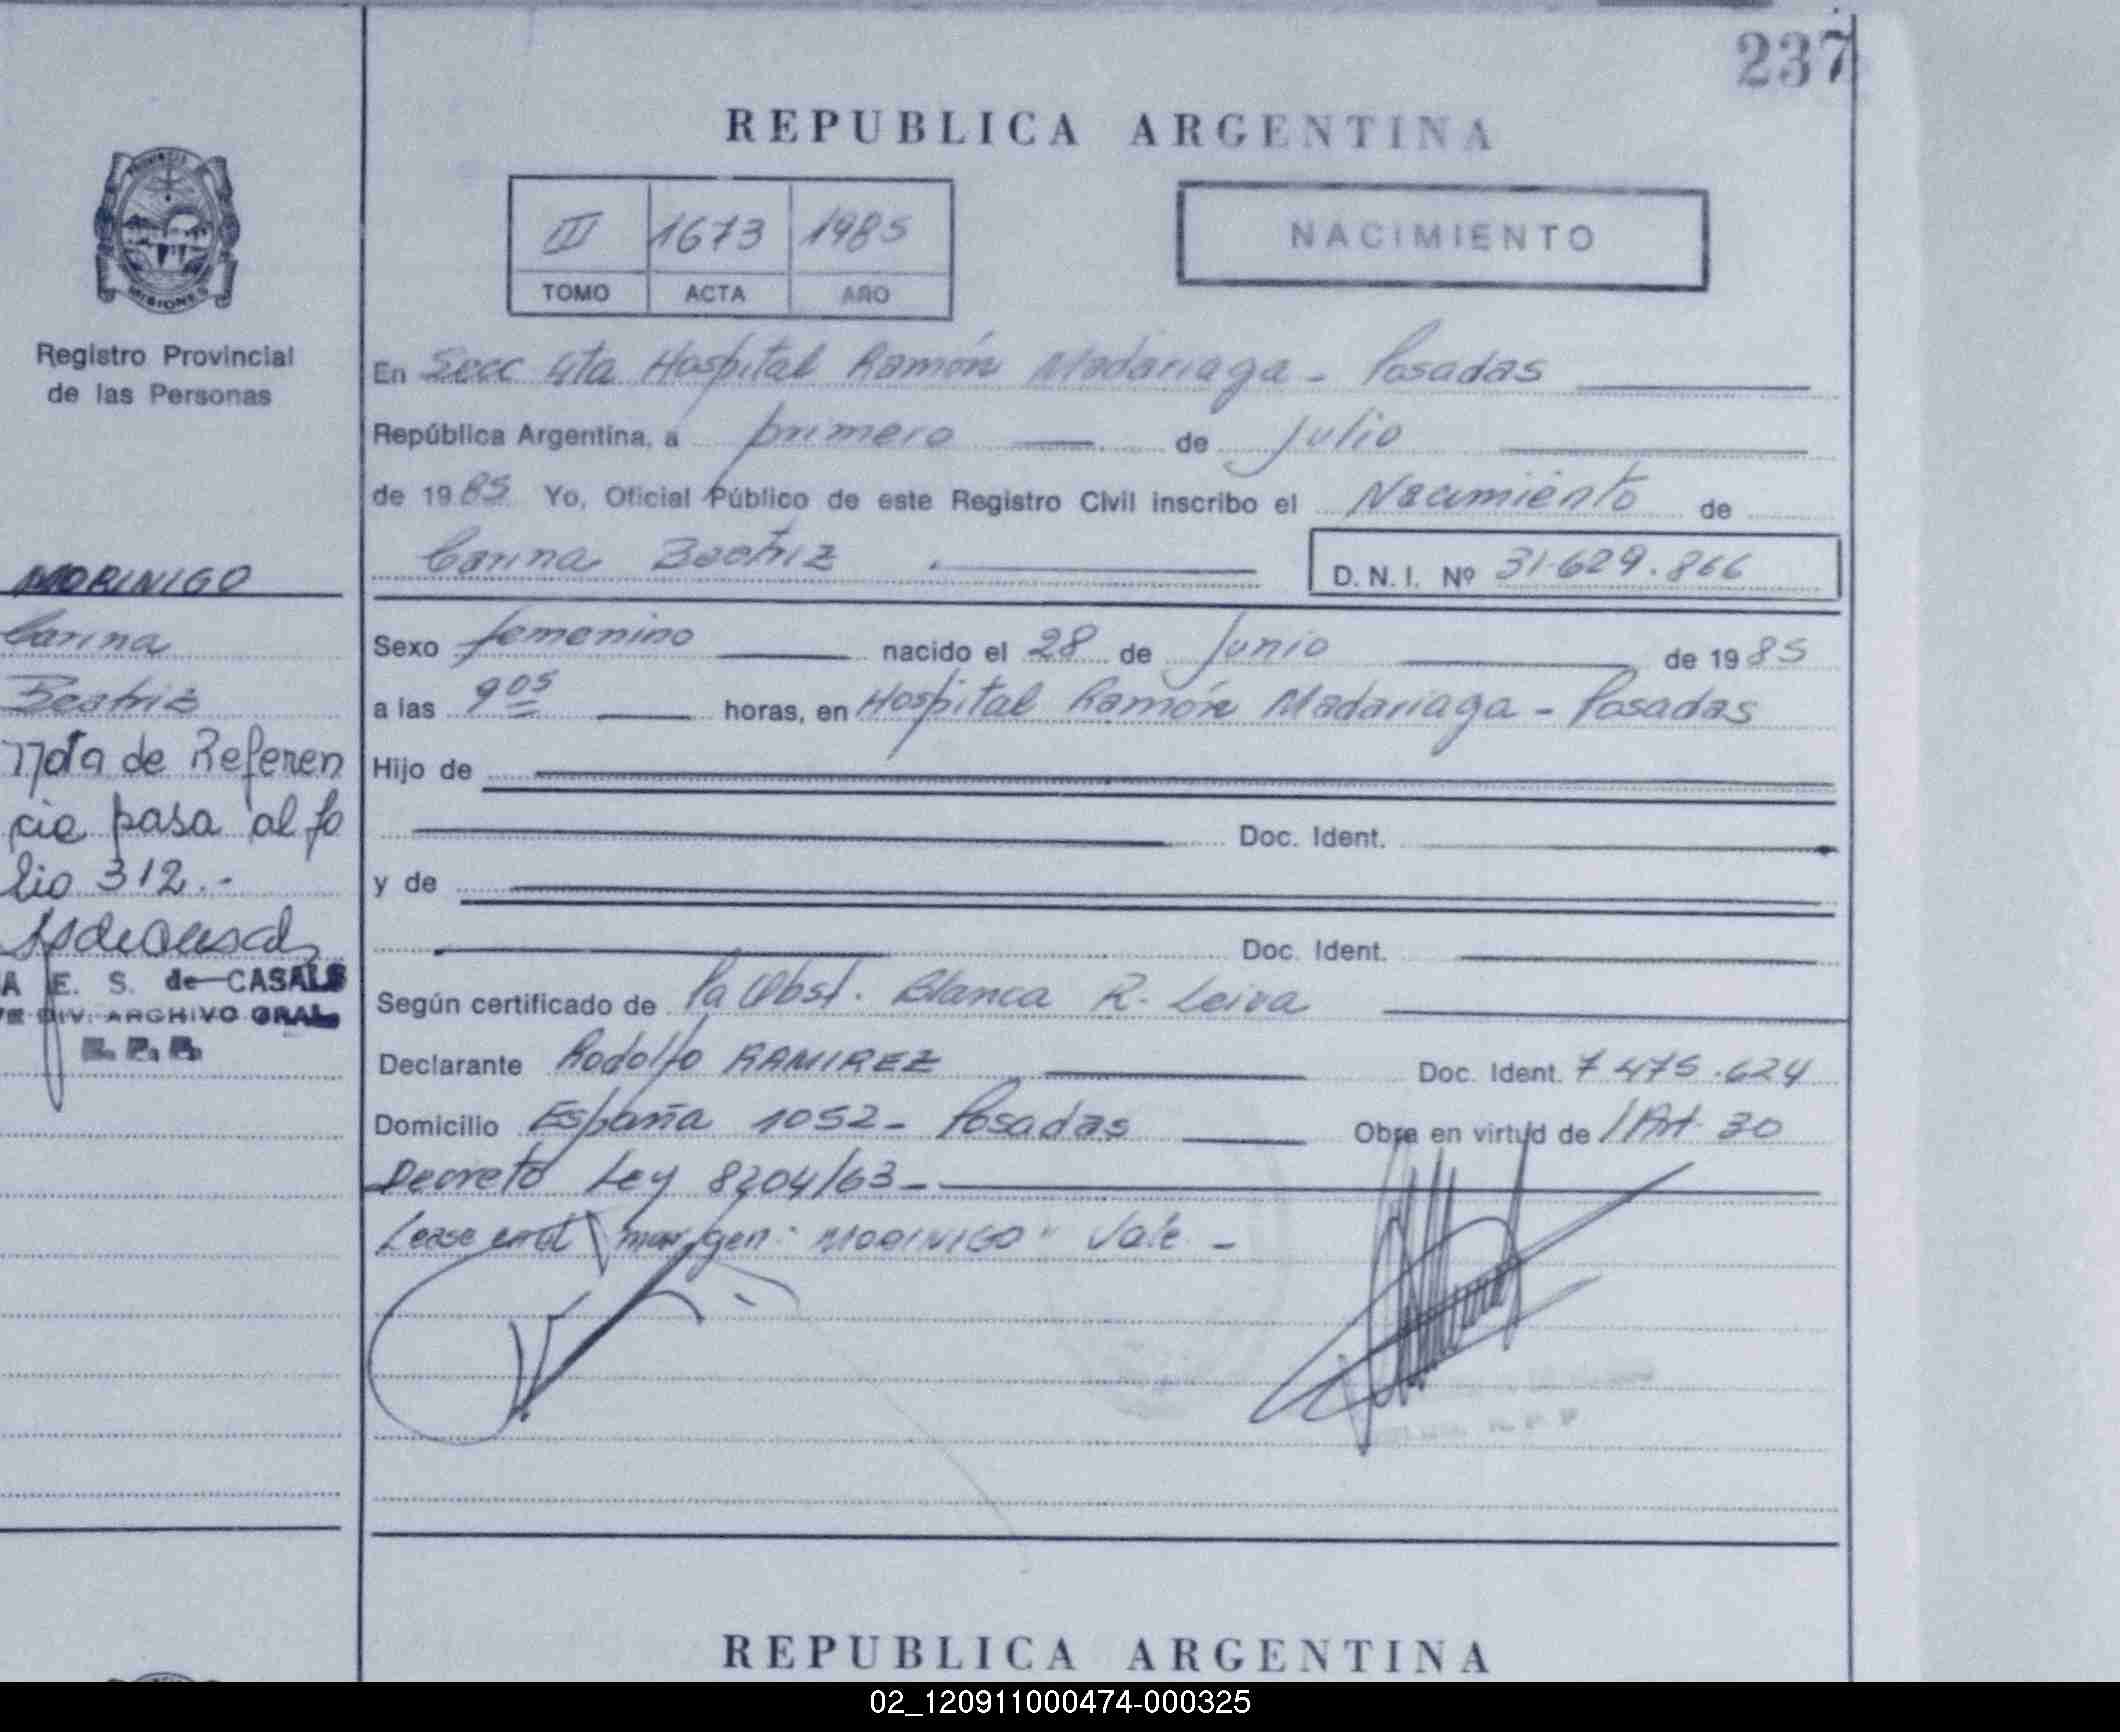 237
REPUBLICA ARGENTINA
III 1673 1985
TOMO ACTA AÑO
NACIMIENTO
PROVINCIA
MISIONES
Registro Provincial
de las Personas
MORINIGO
Carina
Beatriz
Nota de Referen
cia pasa al fo
lio 312.-
A E. S. de CASALS
DIV. ARCHIVO GRAL.
En Secc 4ta Hospital Ramón Madariaga - Posadas
República Argentina, a primero de Julio
de 1985 Yo, Oficial Público de este Registro Civil inscribo el Nacimiento de
Carina Beatriz D.N.I. Nº 31.629.866
Sexo femenino nacido el 28 de Junio de 1985
a las 9 05 horas, en Hospital Ramón Madariaga - Posadas
Hijo de
Doc. Ident.
y de
Doc. Ident.
Según certificado de la Obst. Blanca R. Leiva
Declarante Rodolfo RAMIREZ Doc. Ident. 7 475.624
Domicilio España 1052- Posadas Obra en virtud de /Art. 30
Decreto Ley 8204/63-
Lease en el margen: "MORINIGO" Vale -
REPUBLICA ARGENTINA
02_120911000474-000325